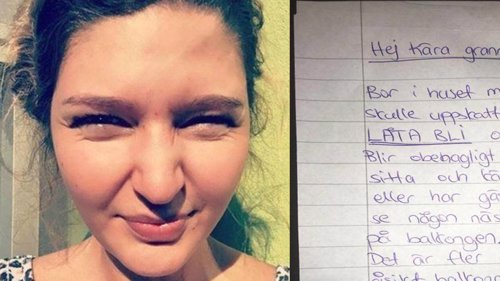 Hej Kära grann
Bor i huset m
skulle uppskatt
LÅTA BLI
Blir obehagligt
sitta och
eller har gä
se någon nä
på balkongen.
Det är fler